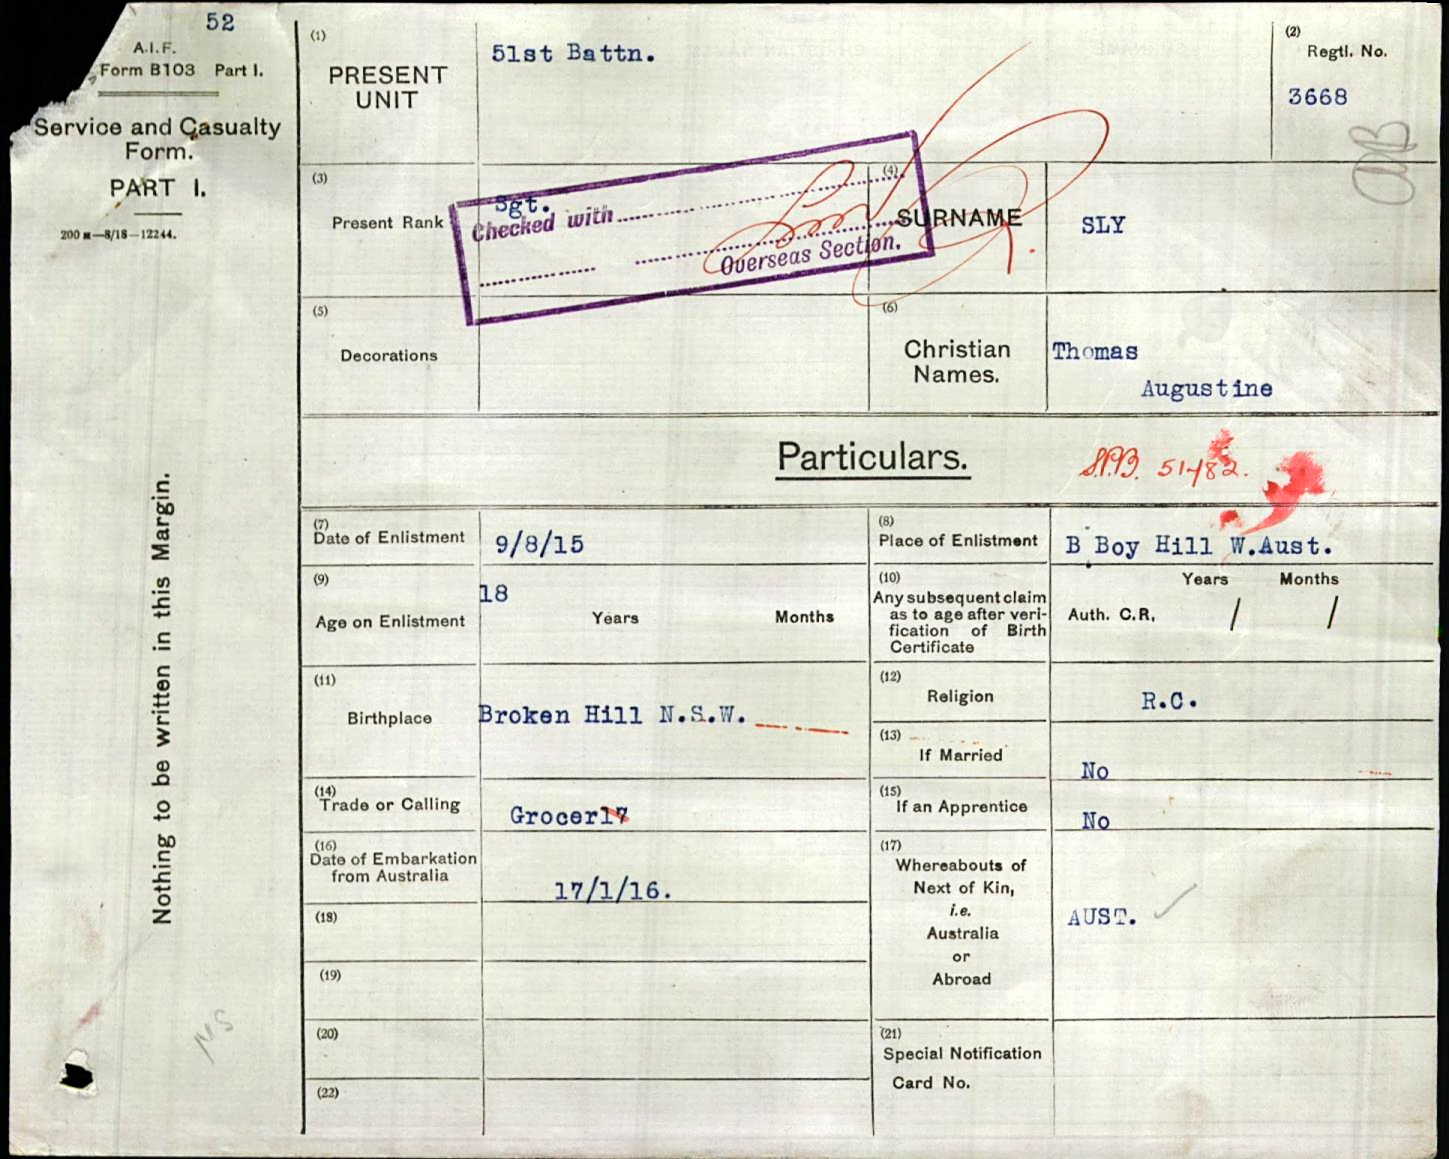 52
A.I.F.
Form B103 Part I.
Service and Casualty
Form.
PART I.
200 M—8/18—12244.
Nothing to be written in this Margin.
(1)
PRESENT
UNIT
51st Battn.
(2)
Regtl. No.
3668
(3)
Present Rank
Sgt.
Checked with
Overseas Section.
(4)
SURNAME
SLY
(5)
Decorations
(6)
Christian
Names.
Thomas
Augustine
Particulars.
(7)
Date of Enlistment
9/8/15
(8)
Place of Enlistment
B Boy Hill W.Aust.
(9)
Age on Enlistment
18
Years Months
(10)
Any subsequent claim
as to age after veri-
fication of Birth
Certificate
Years Months
Auth. C.R, / /
(11)
Birthplace
Broken Hill N.S.W.
(12)
Religion
R.C.
(13)
If Married
No
(14)
Trade or Calling
Grocer17
(15)
If an Apprentice
No
(16)
Date of Embarkation
from Australia
17/1/16.
(17)
Whereabouts of
Next of Kin,
i.e.
Australia
or
Abroad
AUST.
(18)
(19)
(20)
(21)
Special Notification
Card No.
(22)
NS